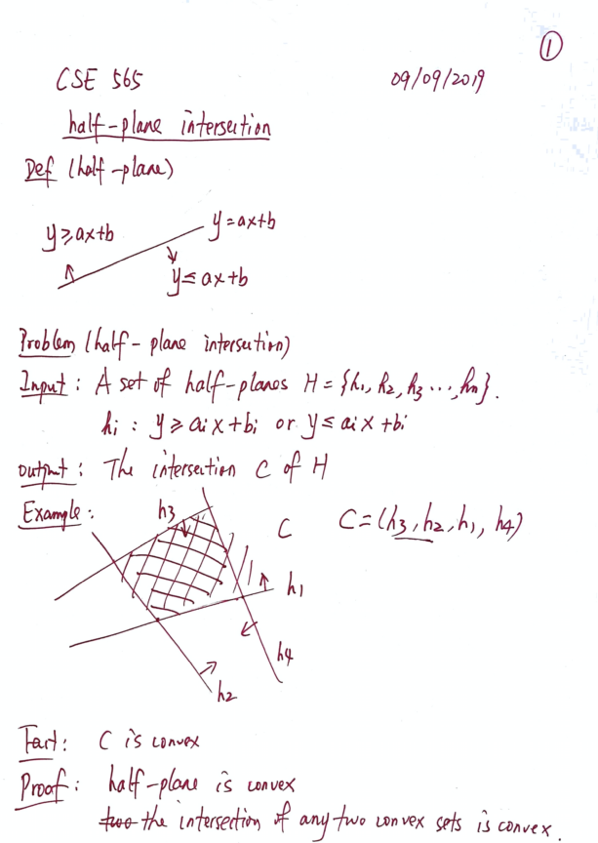 ①
CSE 565 09/09/2019
half-plane intersection
Def (half-plane)
y≥ax+b y=ax+b
y≤ax+b
Problem (half-plane intersection)
Input: A set of half-planes H={h₁, h₂, h₃ ···, hn}.
hi : y≥aix+bi or y≤aix+bi
output: The intersection C of H
Example: h₃ C C=(h₃, h₂, h₁, h₄)
h₁
h₄
h₂
Fact: C is convex
Proof: half-plane is convex
two the intersection of any two convex sets is convex.